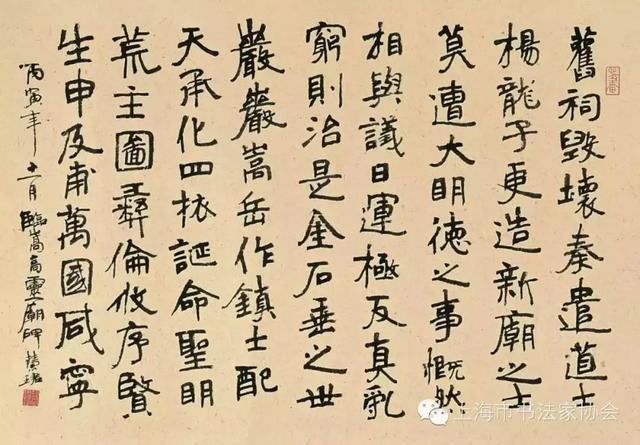 舊祠毀壞奏遣道士
楊龍子更造新廟之士
莫遭大明德之事慨然
相與議曰運極反真亂
窮則治是金石垂之世
嚴嚴嵩岳作鎮土配
天承化四祓誕命聖明
荒主圖彝倫攸序賢
生申及甫萬國咸寧
丙寅年十一月臨嵩高靈廟碑
上海市书法家协会